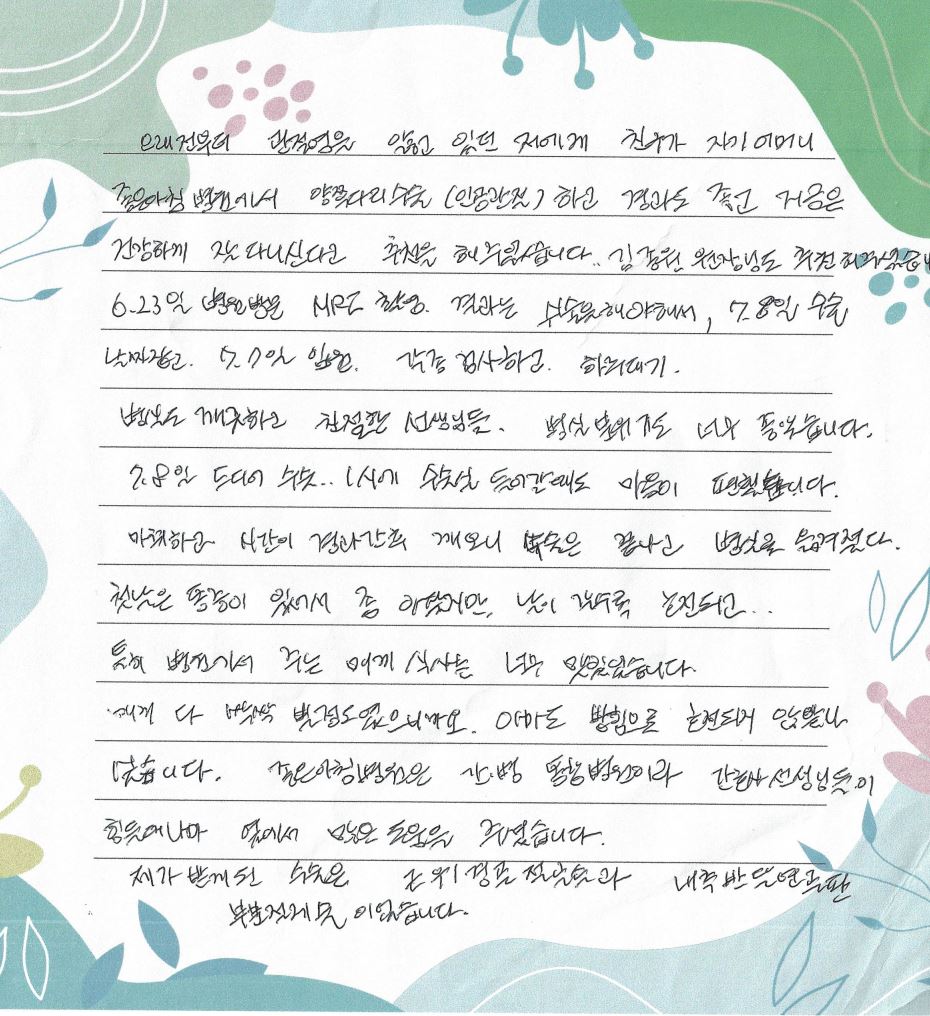 오래전부터 관절염을 앓고 있던 저에게 친구가 자기어머니
좋은아침 병원에서 양쪽다리수술 (인공관절) 하고 경과도 좋고 지금은
건강하게 잘 다니신다고 추천을 해주셨습니다.. 김종원 원장님도 추천해주셨습니
6.23일 병원방문 MRI 촬영. 결과는 수술을해야해서, 7.8일 수술
날짜잡고. 7.7일 입원. 각종 검사하고. 하루대기.
병실도 깨끗하고 친절한 선생님들. 병실 분위기도 너무 좋았습니다.
7.8일 드디어 수술.. 1시에 수술실 들어갈때도 마음이 편했습니다.
마취하고 시간이 경과한후 깨오니 수술은 끝나고 병실로 옮겨졌다.
첫날은 통증이 있어서 좀 아팠지만, 날이 갈수록 호전되고..
특히 병원에서 주는 매끼 식사는 너무 맛있었습니다.
매끼 다 싹싹 비울정도였으니까요. 아마도 밥힘으로 호전되지 않았나
싶습니다. 좋은아침병원은 간.병 통합병원이라 간호사선생님들이
힘들때마다 옆에서 많은도움을 주셨습니다.
제가 받게된 수술은 근위경골절골술과 내측반월연골판
부분절제술 이었습니다.